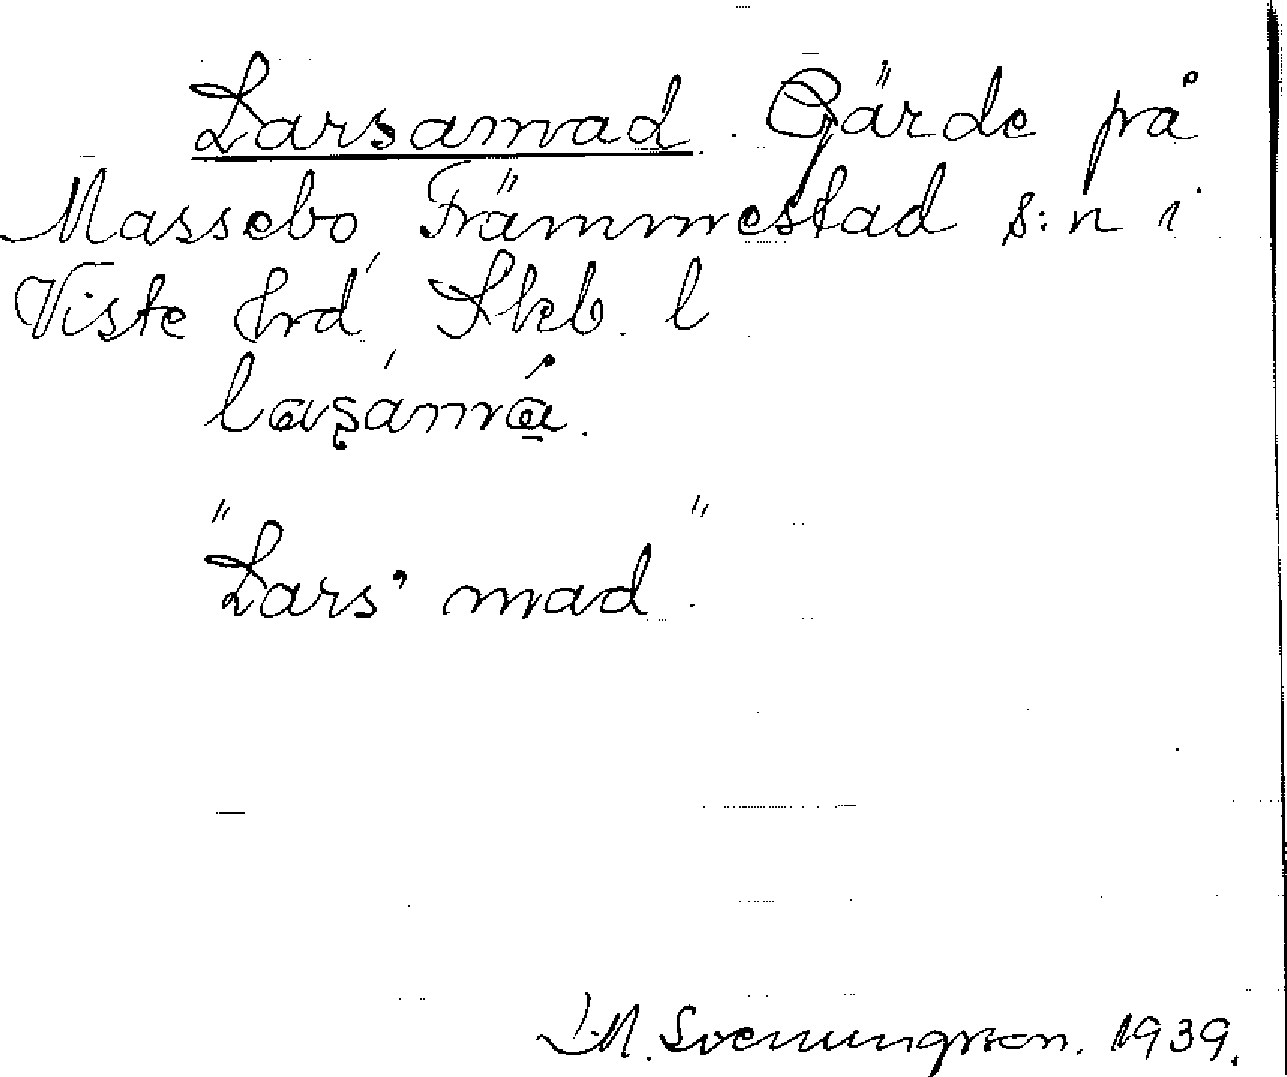 Larsamad. Gärde på
Massebo, Främmestad s:n i
Viste hrd, Skb. l
"Lars' mad".
Svenungsson. 1939.